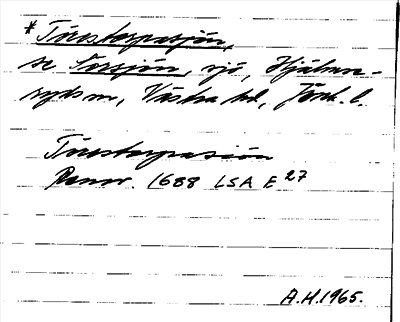 *Torestorpasjön,
se Torsjön, sjö, Hjälmse-
ryds sn, Västra hd, Jönk. l.
Torestorpasiön
Renov. 1688 LSA E 27
A.H. 1965.